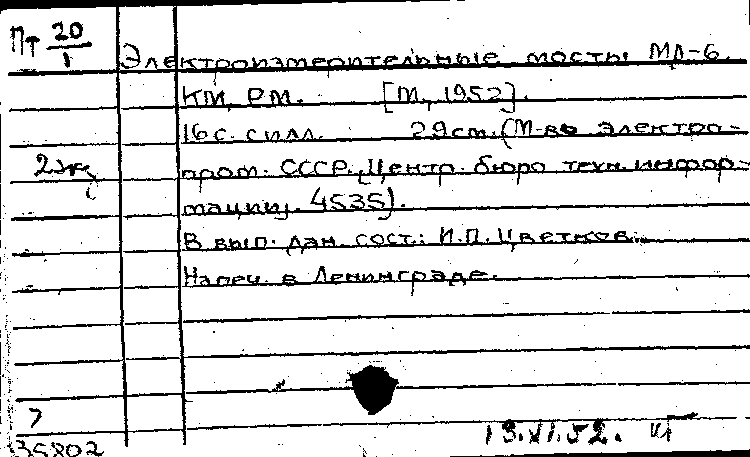 Пт 20/1
Электроизмерительные мосты МЛ-6.
КМ, РМ. [М., 1952].
16 с. с илл. 29 см. (М-во электро-
2 экз
пром. СССР. Центр. бюро техн. инфор-
мации. 4535).
В вып. дан. сост.: И.П. Цветков.
Напеч. в Ленинграде.
7
13.XI.52.
35802